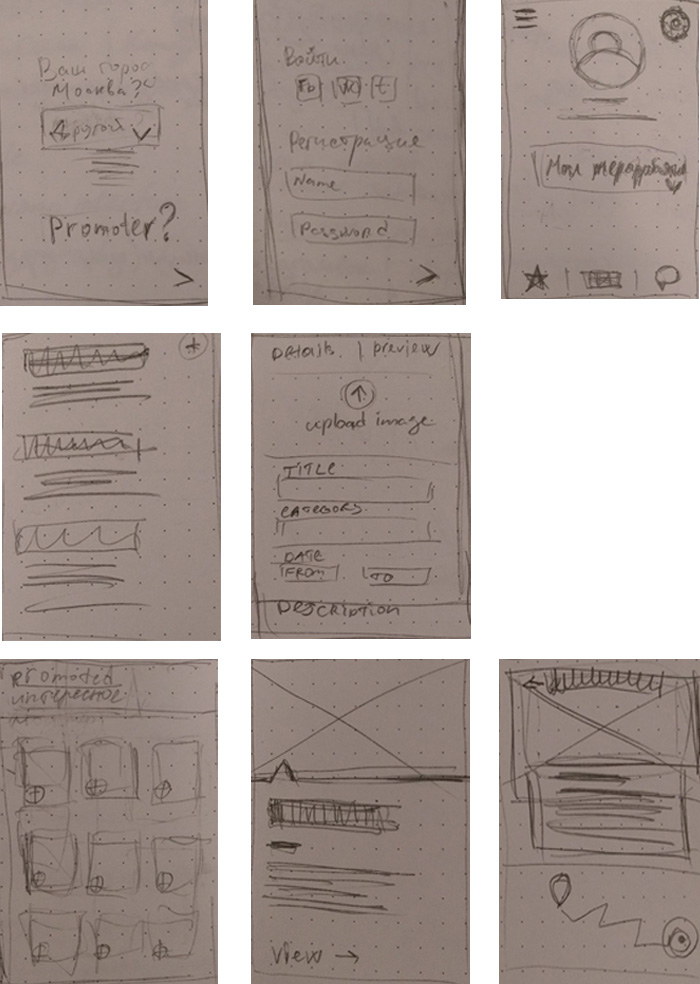 Ваш город
Москва?
Другой
Promoter?
Войти
Fb
VK
t
Регистрация
Name
Password
Мои
Details | preview
upload image
TITLE
CATEGORY
DATE
FROM
TO
DESCRIPTION
Promoted
интересное
View →